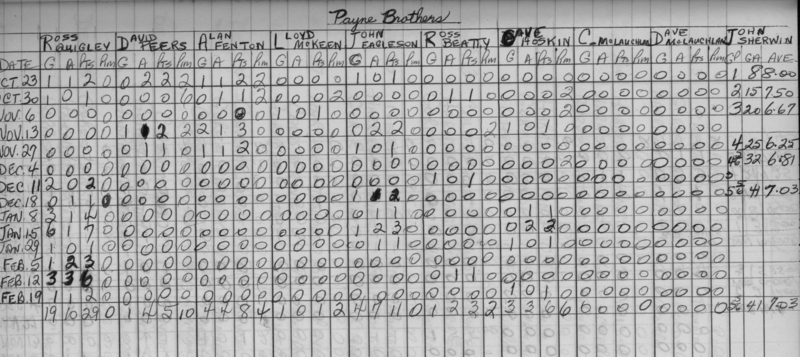 Payne Brothers
ROSS QUIGLEY DAVID PEERS ALAN FENTON LLOYD MCKEEN JOHN EAGLESON ROSS BEATTY DAVE HOSKIN C. MCLAUCHLAN DAVE MCLAUCHLAN JOHN SHERWIN
DATE G A Pts Pim G A Pts Pim G A Pts Pim G A Pts Pim G A Pts Pim G A Pts Pim G A Pts Pim G A Pts Pim G A Pts Pim GP GA AVE.
OCT. 23 1 1 2 0 0 2 2 2 1 1 2 2 0 0 0 0 1 0 1 0 0 0 0 0 0 0 0 0 0 0 0 0 0 0 0 0 1 8 8.00
OCT. 30 1 0 1 0 0 0 0 6 0 1 1 2 0 0 0 2 0 0 0 0 0 1 1 0 0 0 0 2 0 0 0 0 0 0 0 0 2 15 7.50
NOV. 6 0 0 0 0 0 0 0 0 0 0 0 0 1 0 1 0 0 0 0 0 0 0 0 0 0 0 0 2 0 0 0 0 0 0 0 0 3 20 6.67
NOV. 13 0 0 0 0 1 1 2 2 2 1 3 0 0 0 0 0 0 2 2 0 0 0 0 2 1 0 1 0 0 0 0 0 0 0 0 0
NOV. 27 0 0 0 0 0 1 1 0 1 1 2 0 0 0 0 0 1 0 1 0 0 0 0 0 0 0 0 0 0 0 0 0 0 0 0 0 4 25 6.25
DEC. 4 0 0 0 0 0 0 0 0 0 0 0 0 0 0 0 0 0 0 0 0 0 0 0 0 0 0 0 2 0 0 0 0 0 0 0 0 32 6.81
DEC. 11 2 0 2 0 0 0 0 0 0 0 0 0 0 0 0 0 0 0 0 0 1 0 1 0 0 0 0 0 0 0 0 0 0 0 0 0
DEC. 18 0 1 1 0 0 0 0 0 0 0 0 0 0 0 0 0 1 2 0 0 0 0 0 0 0 0 0 0 0 0 0 0 0 0 0 41 7.03
JAN. 8 3 1 4 0 0 0 0 0 0 0 0 0 0 0 0 0 0 1 1 0 0 0 0 0 0 1 1 0 0 0 0 0 0 0 0 0
JAN. 15 6 1 7 0 0 0 0 0 0 0 0 0 0 0 0 0 1 2 3 0 0 0 0 0 0 2 2 0 0 0 0 0 0 0 0 0
JAN. 29 1 0 1 0 0 0 0 0 0 0 0 0 0 0 0 0 0 1 1 0 0 0 0 0 1 0 1 0 0 0 0 0 0 0 0 0
FEB. 5 1 2 3 0 0 0 0 0 0 0 0 0 0 0 0 0 0 0 0 0 0 0 0 0 0 0 0 0 0 0 0 0 0 0 0 0
FEB. 12 3 3 6 0 0 0 0 0 0 0 0 0 0 0 0 0 0 0 0 0 0 1 1 0 0 0 0 0 0 0 0 0 0 0 0 0
FEB. 19 1 1 2 0 0 0 0 0 0 0 0 0 0 0 0 0 0 0 0 0 0 0 0 0 1 0 1 0 0 0 0 0 0 0 0 0
19 10 29 0 1 4 5 10 4 4 8 4 1 0 1 2 4 7 11 0 1 2 3 2 3 3 6 6 0 0 0 0 0 0 0 0 41 7.03